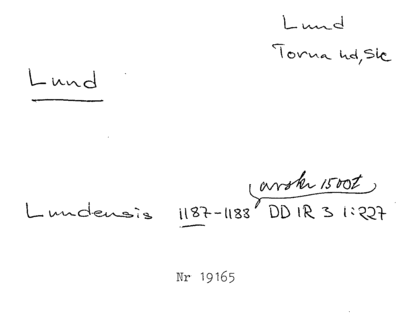 Lund
Torna hd, Sk
Lund
avskr 1500t
Lundensis 1187-1188 DD 1R 3 1:227
Nr 19165